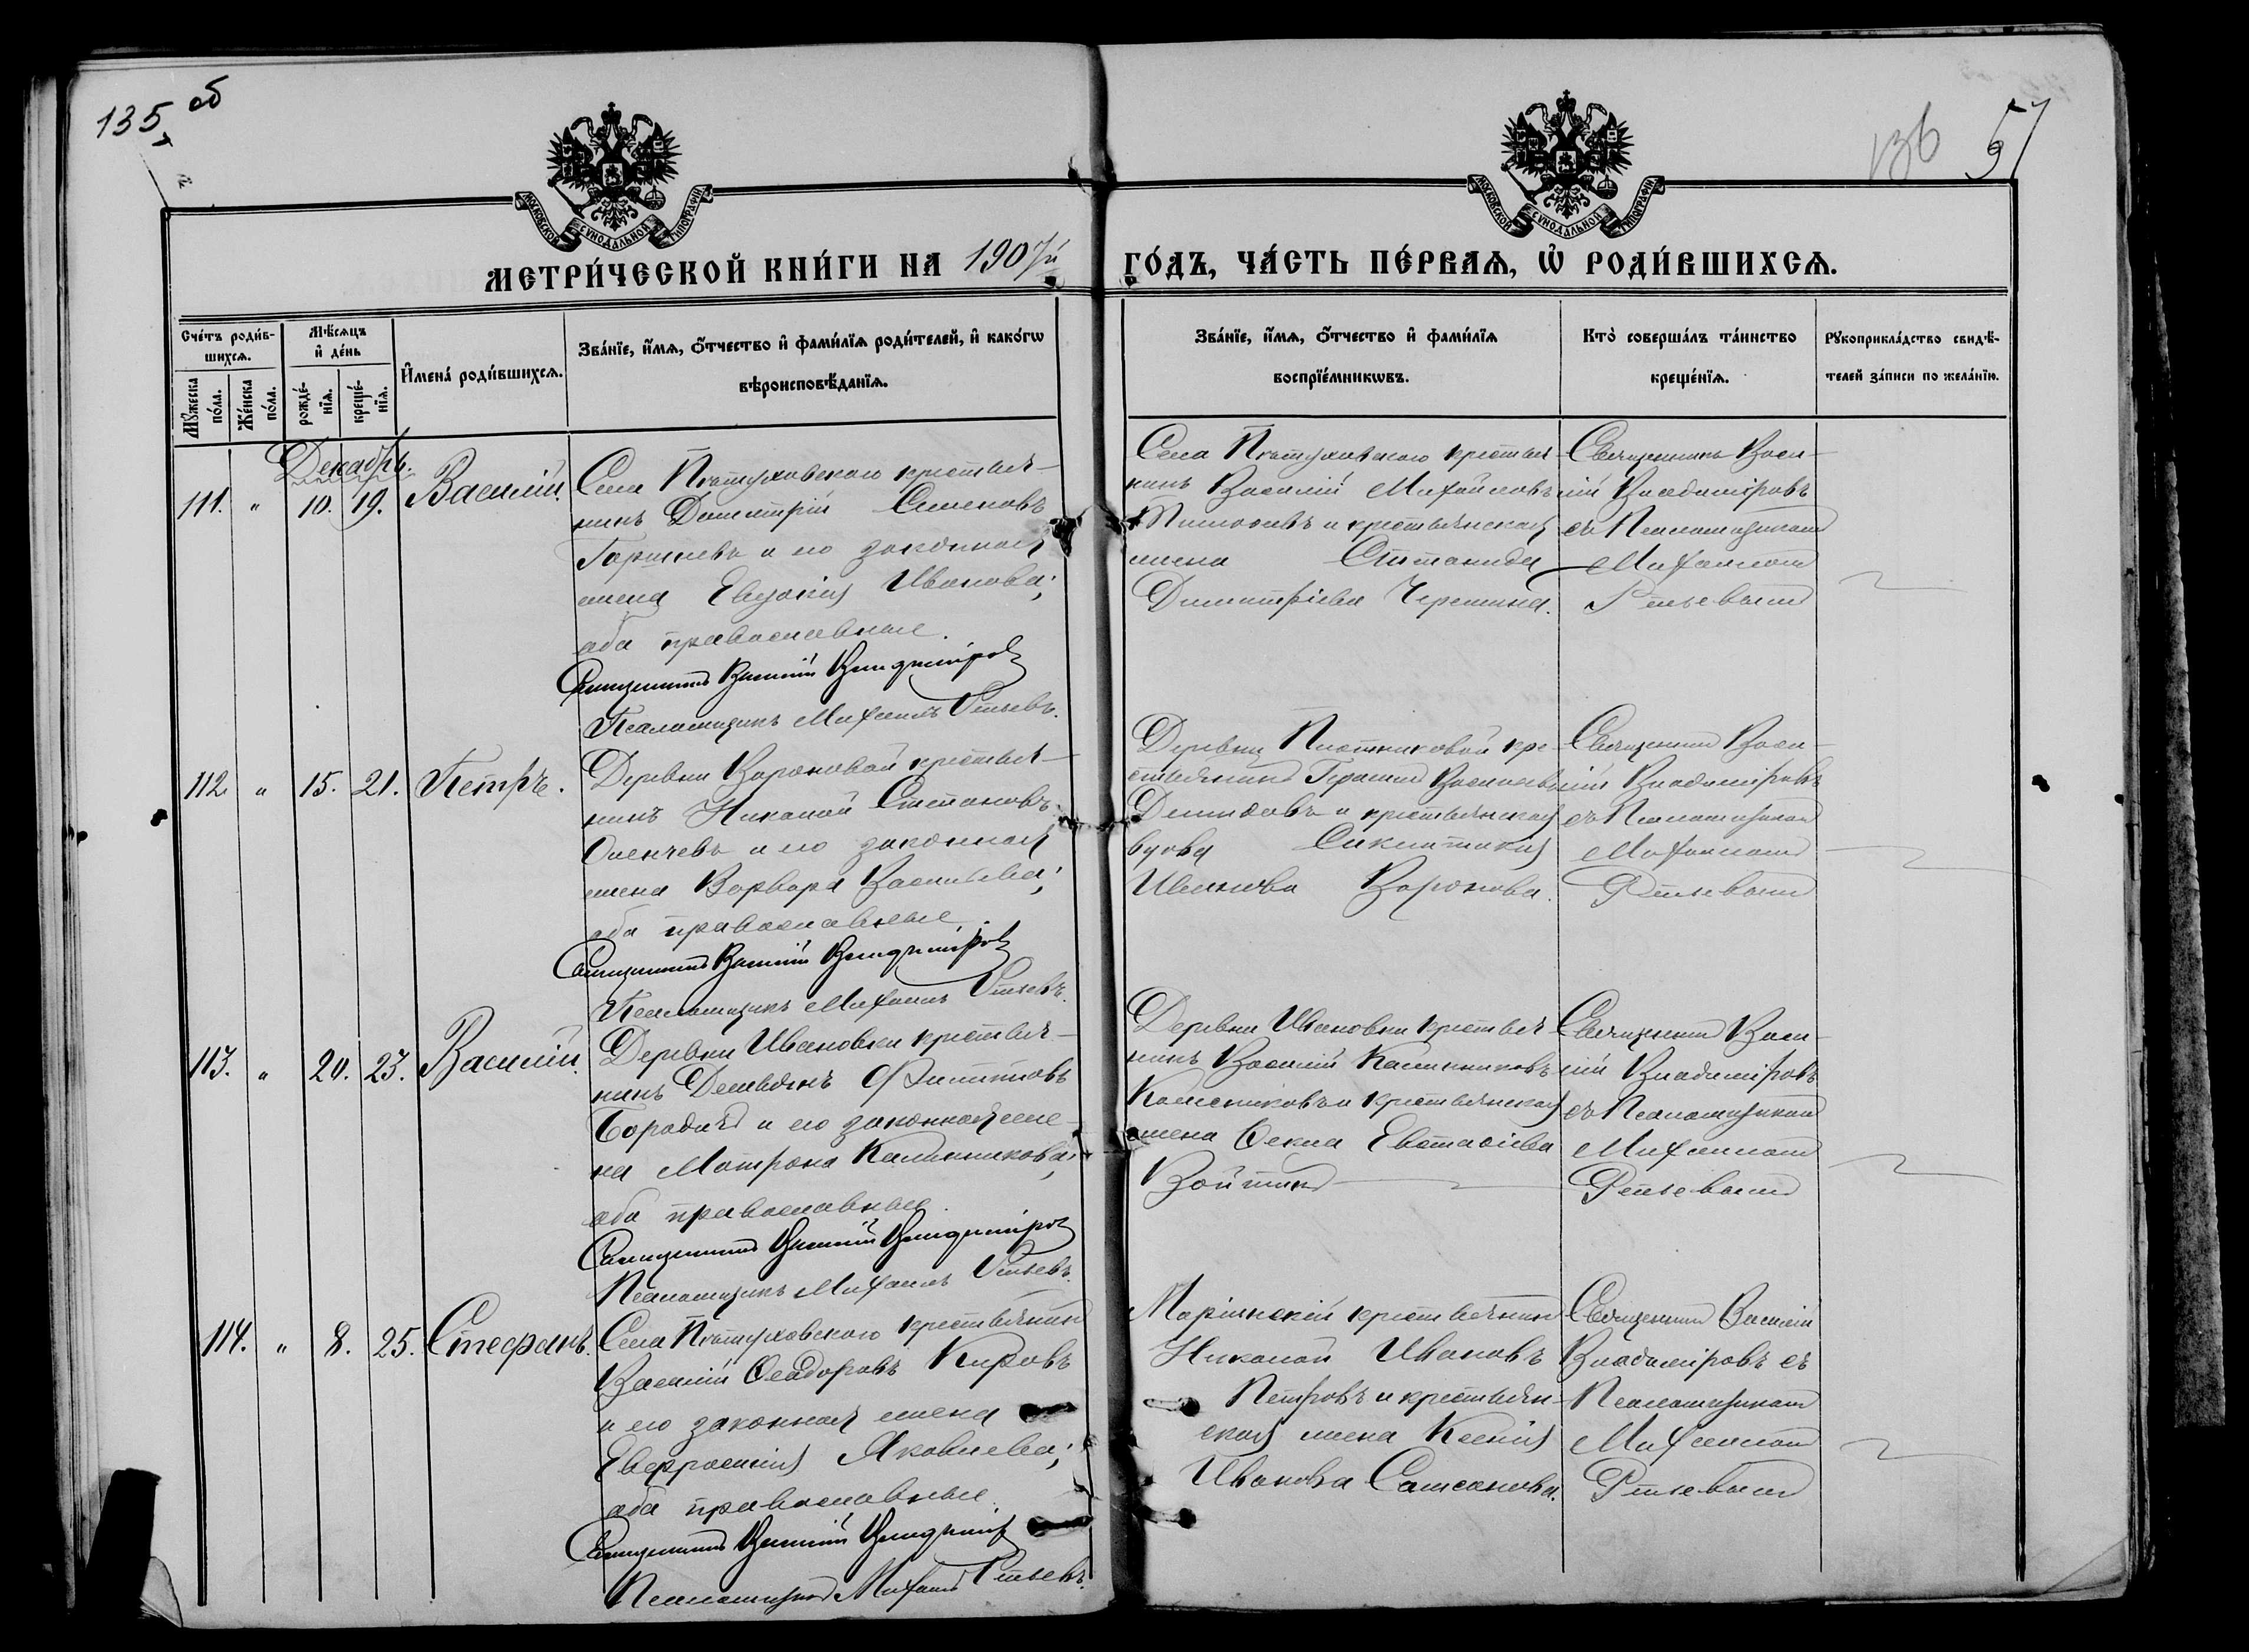 135 об
136
57
МОСКОВСКОЙ СѴНОДАЛЬНОЙ ТИПОГРАФІИ
МОСКОВСКОЙ СѴНОДАЛЬНОЙ ТИПОГРАФІИ
МЕТРИ́ЧЕСКОЙ КНИ́ГИ НА 1907й ГО́ДЪ, ЧА́СТЬ ПЕ́РВАѦ, Ѡ҆ РОДИ́ВШИХСѦ.
Сче́тъ роди́в-
шихсѧ.
Мꙋ́жеска по́ла.
Же́нска по́ла.
Мѣ́сѧцъ
и҆ де́нь
рожде́-
нїѧ.
креще́-
нїѧ.
И҆мена̀ роди́вшихсѧ.
Зва́нїе, и҆́мѧ, ѻ҆́тчество и҆ фами́лїѧ роди́телей, и҆ како́гѡ
вѣроисповѣ́данїѧ.
Зва́нїе, и҆́мѧ, ѻ҆́тчество и҆ фами́лїѧ
воспрїе́мникѡвъ.
Кто̀ соверша́лъ та́инство
креще́нїѧ.
Рꙋкоприкла́дство свидѣ́-
телей за́писи по жела́нїю.
Декабрь.
111. " 10. 19. Василій.
Села Пѣтуховскаго крестья-
нинъ Димитрій Семеновъ
и его законная
жена Евдокія Иванова;
оба православные.
Священникъ Василій Владиміровъ
Псаломщикъ Михаилъ
Села Пѣтуховскаго крестья-
нинъ Василій Михайловъ
Тимофеевъ и крестьянская
жена Степанида
Димитріева Черепина.
Священникъ Васи-
лій Владиміровъ
съ Псаломщикомъ
Михаиломъ
112. " 15. 21. Петръ.
Деревни Вороновой крестья-
нинъ Николай Степановъ
и его законная
жена Варвара Васильева;
оба православные.
Священникъ Василій Владиміровъ
Псаломщикъ Михаилъ
Деревни Плотниковой кре-
стьянинъ Герасимъ Васильевъ
Демидовъ и крестьянская
вдова
Иванова Воронова.
Священникъ Васи-
лій Владиміровъ
съ Псаломщикомъ
Михаиломъ
113. " 20. 23. Василій.
Деревни Ивановки крестья-
нинъ Филипповъ
Бородинъ и его законная же-
на Матрона Калинникова;
оба православные.
Священникъ Василій Владиміровъ
Псаломщикъ Михаилъ
Деревни Ивановки крестья-
нинъ Василій Калинниковъ
Колесниковъ и крестьянская
жена Ѳекла Евстафіева
Священникъ Васи-
лій Владиміровъ
съ Псаломщикомъ
Михаиломъ
114. " 8. 25. Стефанъ.
Села Пѣтуховскаго крестьянинъ
Василій Ѳеодоровъ Кировъ
и его законная жена
Евфросинія Яковлева;
оба православные.
Священникъ Василій Владиміровъ
Псаломщикъ Михаилъ
Маріинскій крестьянинъ
Николай Ивановъ
Петровъ и крестьян-
ская жена Ксенія
Иванова Самсонова.
Священникъ Василій
Владиміровъ съ
Псаломщикомъ
Михаиломъ